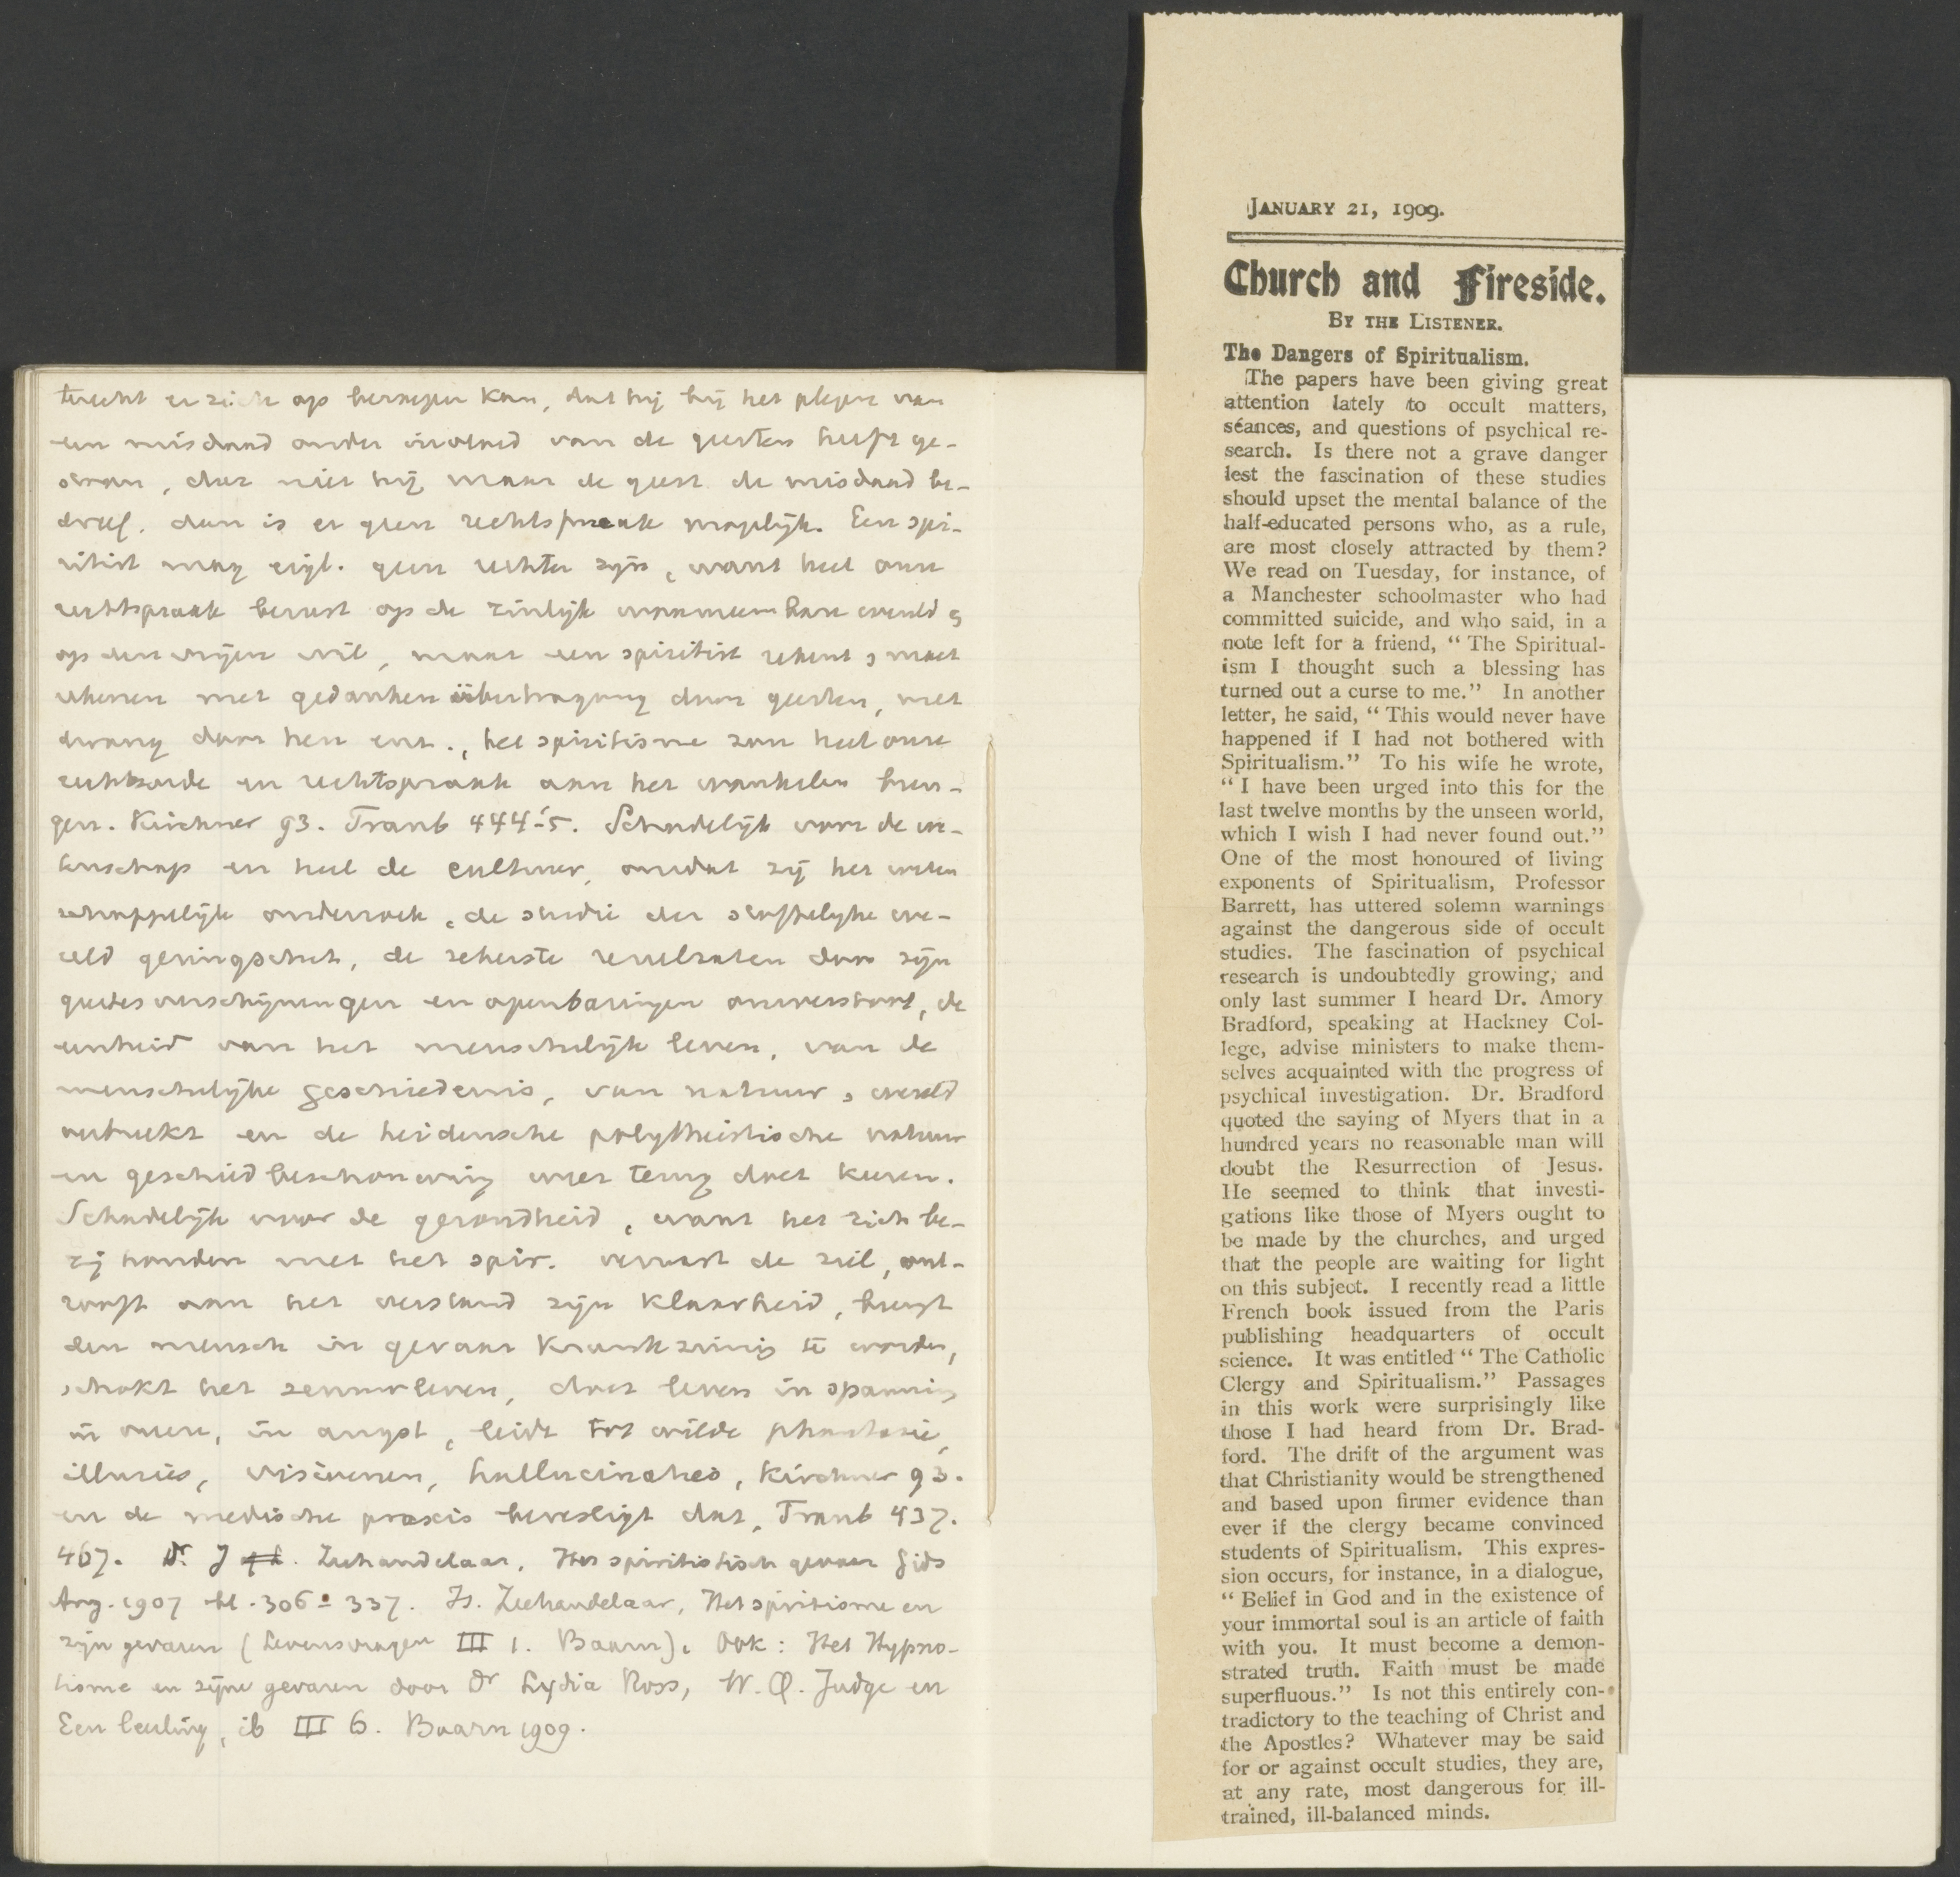 terecht er zich op beroepen kan, dat hij bij het plegen van
een misdaad onder invloed van de geesten heeft ge-
staan, dat niet hij maar de geest de misdaad be-
dreef. dan is er geen rechtspraak mogelijk. Een spi-
ritist mag eigl. geen rechter zijn, want heel onze
rechtspraak berust op de zinlijk waarneembare wereld &
op den vrijen wil, maar een spiritist rekent & moet
rekenen met gedankenübertragung door geesten, met
dwang door hen enz., het spiritisme zou heel onze
rechtsorde en rechtspraak aan het wankelen bren-
gen. Kirchner 93. Traub 444-5. Schadelijk voor de we-
tenschap en heel de cultuur, omdat zij het weten
schappelijk onderzoek, de studie der stoffelijke we-
reld geringschat, de zekerste resultaten door zijn
geestesverschijningen en openbaringen omverstoot, de
eenheid van het menschelijk leven, van de
menschelijke geschiedenis, van natuur & wereld
verbreekt en de heidensche polytheistische natuur
en geschiedbeschouwing weer terug doet keeren.
Schadelijk voor de gezondheid, want het zich be-
zig houden met het spir. verwart de ziel, ont-
rooft aan het verstand zijn klaarheid, brengt
den mensch in gevaar krankzinnig te worden,
schokt het zenuwleven, doet leven in spanning
in vrees, in angst, leidt tot wilde phantasie,
illusies, visioenen, hallucinaties, Kirchner 93.
en de medische praxis bevestigt dat, Traub 437.
467. Dr. J. Zeehandelaar, Het spiritistisch gevaar Gids
Aug. 1907 bl. 306-337. Is. Zeehandelaar, Het spiritisme en
zijn gevaren (Levensvragen III 1. Baarn). Ook: Het Hypno-
tisme en zijne gevaren door Dr Lydia Ross, W. Q. Judge en
Een leerling, ib III 6. Baarn 1909.
JANUARY 21, 1909.
Church and Fireside.
BY THE LISTENER.
The Dangers of Spiritualism.
The papers have been giving great
attention lately to occult matters,
séances, and questions of psychical re-
search. Is there not a grave danger
lest the fascination of these studies
should upset the mental balance of the
half-educated persons who, as a rule,
are most closely attracted by them?
We read on Tuesday, for instance, of
a Manchester schoolmaster who had
committed suicide, and who said, in a
note left for a friend, “ The Spiritual-
ism I thought such a blessing has
turned out a curse to me.” In another
letter, he said, “ This would never have
happened if I had not bothered with
Spiritualism.” To his wife he wrote,
“ I have been urged into this for the
last twelve months by the unseen world,
which I wish I had never found out.”
One of the most honoured of living
exponents of Spiritualism, Professor
Barrett, has uttered solemn warnings
against the dangerous side of occult
studies. The fascination of psychical
research is undoubtedly growing, and
only last summer I heard Dr. Amory
Bradford, speaking at Hackney Col-
lege, advise ministers to make them-
selves acquainted with the progress of
psychical investigation. Dr. Bradford
quoted the saying of Myers that in a
hundred years no reasonable man will
doubt the Resurrection of Jesus.
He seemed to think that investi-
gations like those of Myers ought to
be made by the churches, and urged
that the people are waiting for light
on this subject. I recently read a little
French book issued from the Paris
publishing headquarters of occult
science. It was entitled “ The Catholic
Clergy and Spiritualism.” Passages
in this work were surprisingly like
those I had heard from Dr. Brad-
ford. The drift of the argument was
that Christianity would be strengthened
and based upon firmer evidence than
ever if the clergy became convinced
students of Spiritualism. This expres-
sion occurs, for instance, in a dialogue,
“ Belief in God and in the existence of
your immortal soul is an article of faith
with you. It must become a demon-
strated truth. Faith must be made
superfluous.” Is not this entirely con-
tradictory to the teaching of Christ and
the Apostles? Whatever may be said
for or against occult studies, they are,
at any rate, most dangerous for ill-
trained, ill-balanced minds.